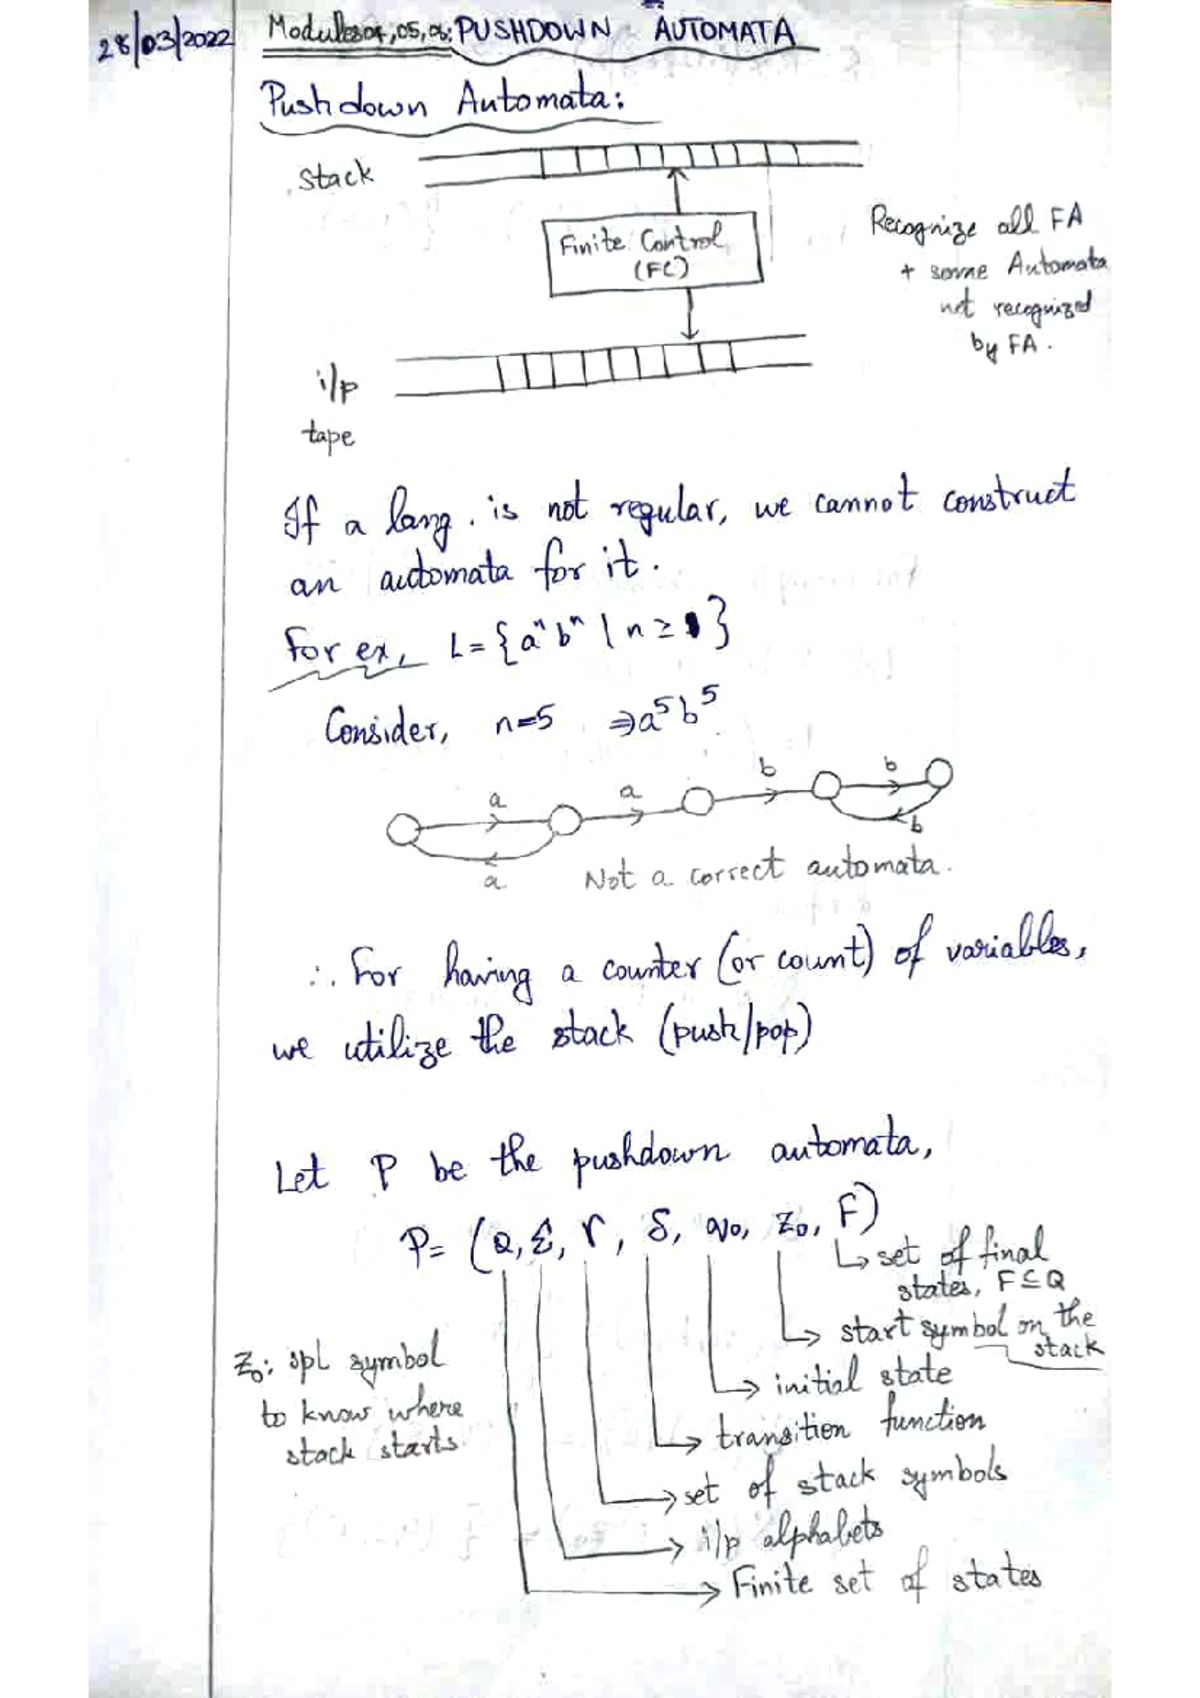 28/03/2022 Modules 04, 05, 06: PUSHDOWN AUTOMATA
Pushdown Automata:
Stack
Finite Control
(FC)
Recognize all FA
+ some Automata
not recognized
by FA.
i/p
tape
If a lang. is not regular, we cannot construct
an automata for it.
For ex, L = {aⁿbⁿ | n ≥ 1}
Consider, n=5 ⇒ a⁵b⁵
a a b b
a b
Not a correct automata.
∴ For having a counter (or count) of variables,
we utilize the stack (push/pop)
Let P be the pushdown automata,
P = (Q, Σ, Γ, δ, q₀, z₀, F)
↳ set of final
states, F ⊆ Q
→ start symbol on the
stack
z₀: spl symbol
to know where
stack starts.
→ initial state
→ transition function
→ set of stack symbols
→ i/p alphabets
→ Finite set of states